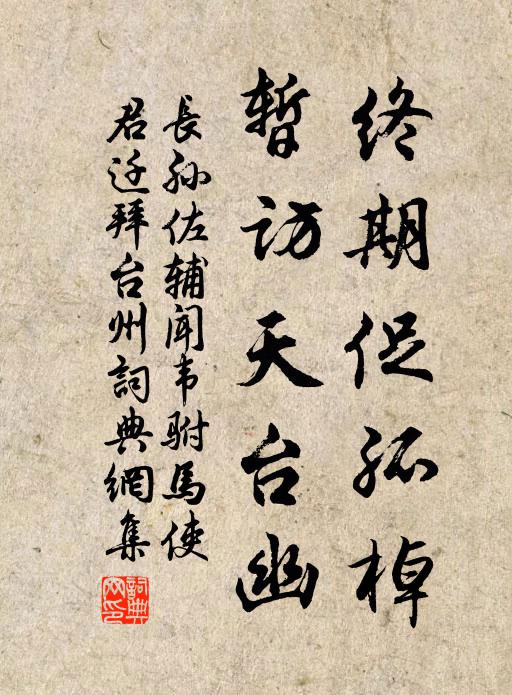 终期促孤棹
暂访天台幽
長孙佐辅闻韦駙馬使
君迁拜台州詞典網集
詞典网印